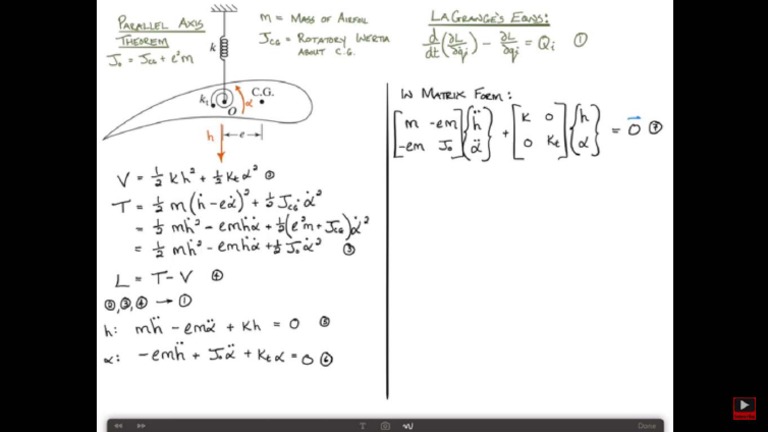 PARALLEL AXIS
THEOREM
J₀ = J_CG + e²m
m = MASS OF AIRFOIL
J_CG = ROTATORY INERTIA
ABOUT C.G.
LAGRANGE'S EQNS:
d/dt (∂L/∂q̇i) - ∂L/∂qi = Qi ①
k
kt
C.G.
α
O
h
e
V = ½ kh² + ½ Kt α² ②
T = ½ m(ḣ - eα̇)² + ½ J_CG α̇²
= ½ mḣ² - emḣα̇ + ½(e²m + J_CG)α̇²
= ½ mḣ² - emḣα̇ + ½ J₀ α̇² ③
L = T - V ④
②,③,④ → ①
h: mḧ - emα̈ + Kh = 0 ⑤
α: -emḧ + J₀α̈ + Kt α = 0 ⑥
IN MATRIX FORM:
[m -em; -em J₀] {ḧ; α̈} + [K 0; 0 Kt] {h; α} = 0⃗ ⑦
T
Done